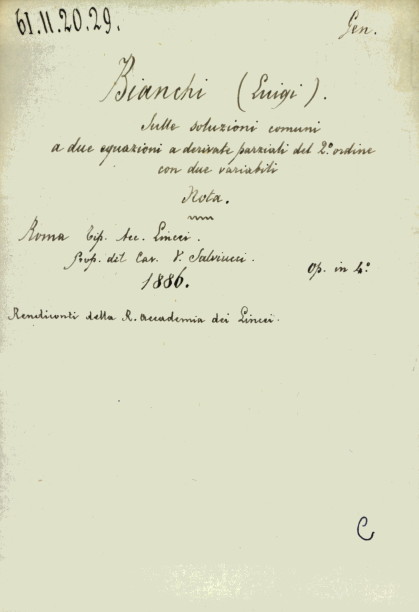 61.11.20.29.
Gen.
Bianchi (Luigi).
Sulle soluzioni comuni
a due equazioni a derivate parziali del 2.° ordine
con due variabili
Nota.
Roma Tip. Acc. Lincei.
Prop. del Cav. V. Salviucci.
1886.
Op. in 4.°
Rendiconti della R. Accademia dei Lincei.
C